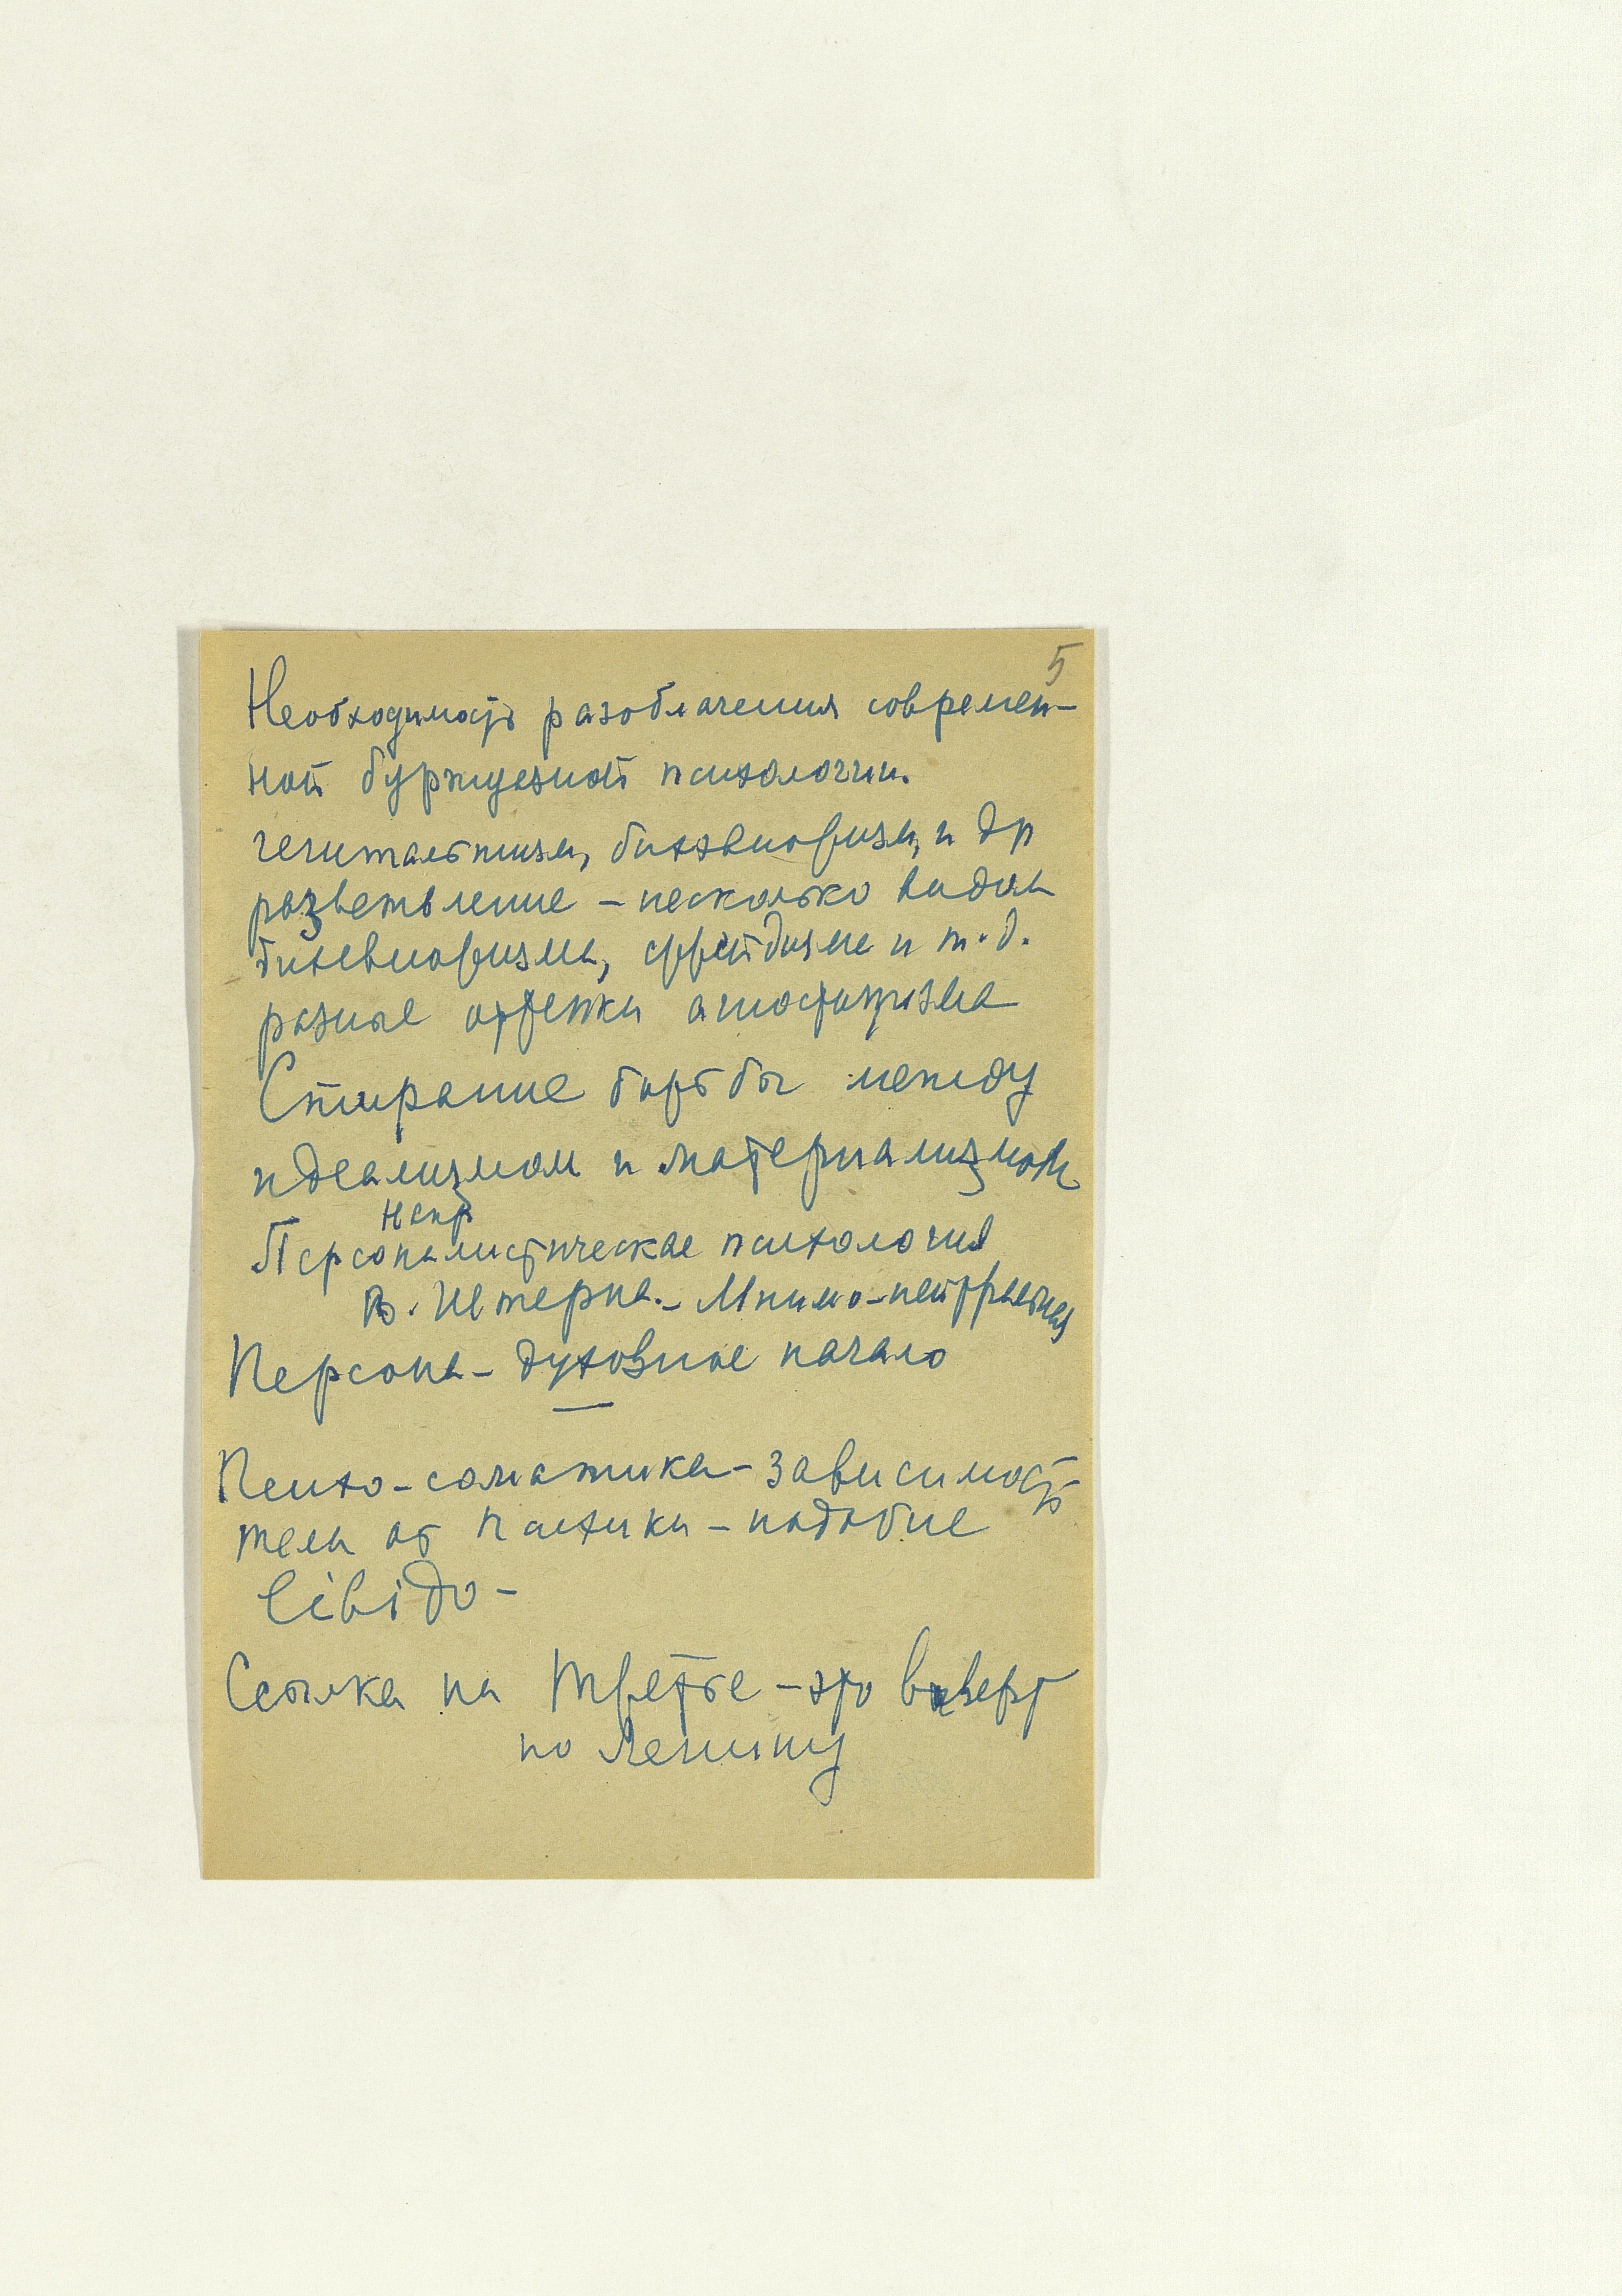 5
Необходимость разоблачения современ-
ной буржуазной психологии.
гештальтизм, бихевиоризм, и др
разветвление – несколько видов
бихевиоризма, фрейдизме и т.д.
разные оттенки агностицизма
Стирание борьбы между
идеализмом и материализмом
Напр
Персоналистическая психология
В. Штерна. – Мнимо-нейтральная
Персона – духовное начало
Психо-соматика – зависимость
тела от психики – подобие
libido –
Ссылка на третье – это
по Ленину